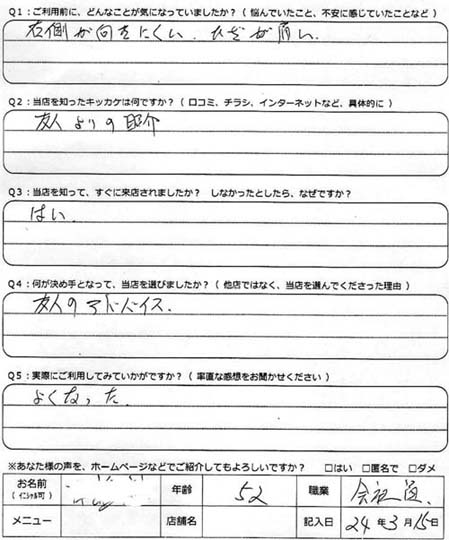 Q1：ご利用前に、どんなことが気になっていましたか？（ 悩んでいたこと、不安に感じていたことなど ）
右側が向きにくい、ひざが痛い。
Q2：当店を知ったキッカケは何ですか？（ 口コミ、チラシ、インターネットなど、具体的に ）
友人よりの紹介
Q3：当店を知って、すぐに来店されましたか？　しなかったとしたら、なぜですか？
はい。
Q4：何が決め手となって、当店を選びましたか？（ 他店ではなく、当店を選んでくださった理由 ）
友人のアドバイス。
Q5：実際にご利用してみていかがですか？（ 率直な感想をお聞かせください ）
よくなった。
※あなた様の声を、ホームページなどでご紹介してもよろしいですか？　□はい　□匿名で　□ダメ
お名前　年齢　52　職業　会社員.
（ イニシャル可 ）
メニュー　店舗名　記入日　24年3月15日